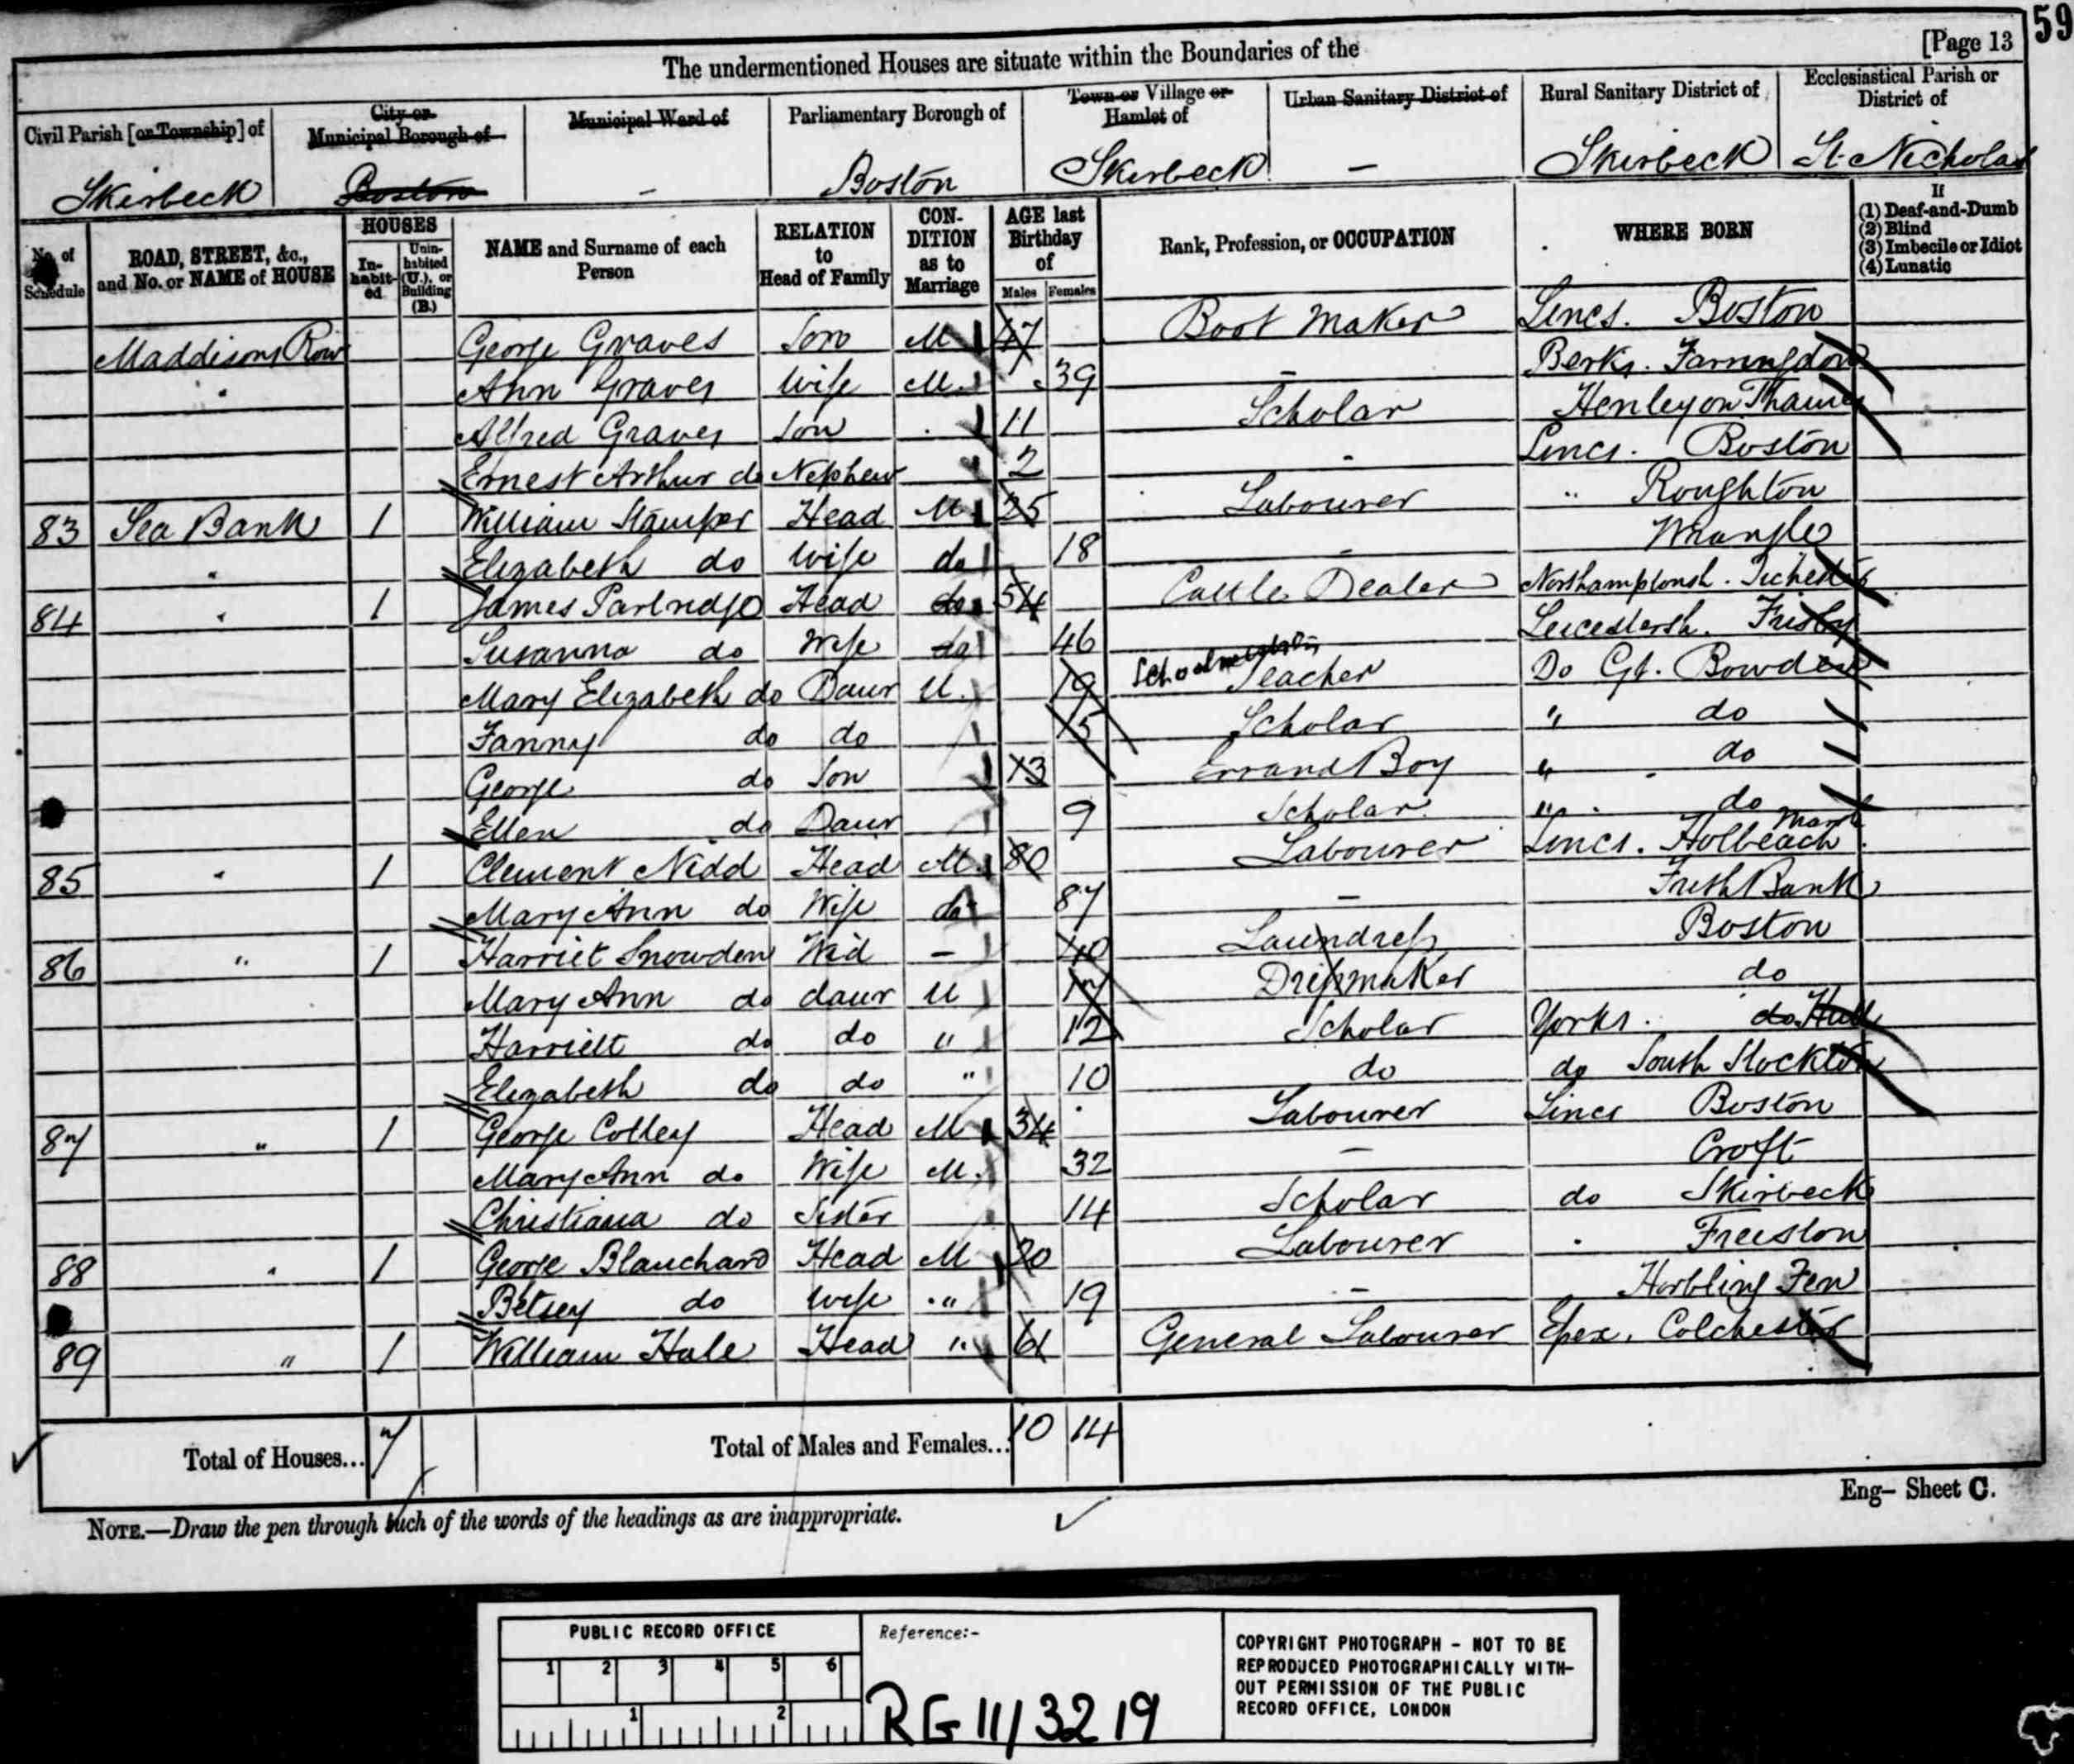 59
[Page 13
The undermentioned Houses are situate within the Boundaries of the
Civil Parish [or Township] of
City or Municipal Borough of
Municipal Ward of
Parliamentary Borough of
Town or Village or Hamlet of
Urban Sanitary District of
Rural Sanitary District of
Ecclesiastical Parish or District of
Skirbeck Boston - Boston Skirbeck - Skirbeck St. Nicholas
No. of Schedule
ROAD, STREET, &c., and No. or NAME of HOUSE
HOUSES
In-habit-ed
Unin-habited (U.), or Building (B.)
NAME and Surname of each Person
RELATION to Head of Family
CON-DITION as to Marriage
AGE last Birthday of
Males Females
Rank, Profession, or OCCUPATION
WHERE BORN
If
(1) Deaf-and-Dumb
(2) Blind
(3) Imbecile or Idiot
(4) Lunatic
Maddisons Row George Graves Son M 47 Boot Maker Lincs. Boston
" Ann Graves Wife M. 39 - Berks. Farringdon
Alfred Graves Son 11 Scholar Henley on Thames
Ernest Arthur do Nephew 2 - Lincs. Boston
83 Sea Bank 1 William Stamper Head M 25 Labourer " Roughton
" Elizabeth do Wife do 18 - Wrangle
84 " 1 James Partridge Head do 54 Cattle Dealer Northamptonsh.
Susanna do Wife do 46 Leicestersh. Frisby
Mary Elizabeth do Daur U. 19 Schoolmistress Teacher Do Gt. Bowden
Fanny do do 15 Scholar " do
George do Son 13 Errand Boy " do
Ellen do Daur 9 Scholar " do
85 " 1 Clement Nidd Head M. 80 Labourer Lincs. Holbeach Marsh
Mary Ann do Wife do 87 - Frith Bank
86 " 1 Harriet Snowden Wid - 40 Laundress Boston
Mary Ann do daur U 17 Dressmaker do
Harriett do do " 12 Scholar Yorks. do Hull
Elizabeth do do " 10 do do South Stockton
87 " 1 George Colley Head M 34 Labourer Lincs Boston
Mary Ann do Wife M. 32 - Croft
Christiana do Sister 14 Scholar do Skirbeck
88 " 1 George Blanchard Head M 20 Labourer " Freiston
Betsey do Wife " 19 - Horbling Fen
89 " 1 William Hale Head " 61 General Labourer Essex. Colchester
Total of Houses... 7 Total of Males and Females... 10 14
Eng- Sheet C.
NOTE.—Draw the pen through such of the words of the headings as are inappropriate.
PUBLIC RECORD OFFICE
1 2 3 4 5 6
1 2
Reference:-
RG 11/3219
COPYRIGHT PHOTOGRAPH - NOT TO BE
REPRODUCED PHOTOGRAPHICALLY WITH-
OUT PERMISSION OF THE PUBLIC
RECORD OFFICE, LONDON